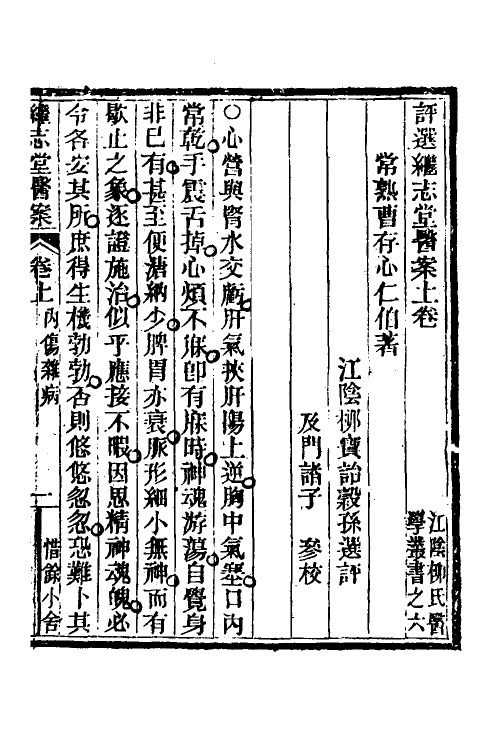 江陰柳氏醫
學叢書之六
評選繼志堂醫案上卷
常熟曹存心仁伯著
江陰柳寶詒穀孫選評
及門諸子 參校
○心營與腎水交虧肝氣挾肝陽上逆胸中氣塞口內
常乾手震舌掉心煩不寐卽有寐時神魂游蕩自覺身
非己有甚至便溏納少脾胃亦衰脈形細小無神而有
歇止之象逐證施治似乎應接不暇因思精神魂魄必
令各安其所庶得生機勃勃否則悠悠忽忽恐難卜其
繼志堂醫案 卷上 內傷雜病 一 惜餘小舍